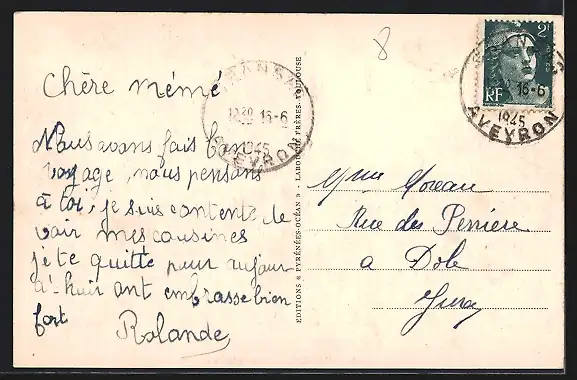 8
Chère mémé
Nous avons fais bon
voyage, nous pensons
à toi, je suis contente de
voir mes cousines
je te quitte pour aujour
d'huir ont embrasse bien
fort
Rolande
CRANSAC
18 30 16-6
1945
AVEYRON
EDITIONS « PYRÉNÉES-OCÉAN » - LABOUCHE FRÈRES, TOULOUSE
2F
RF
CRANSAC
16-6
1945
AVEYRON
Mme Moreau
Rue des Perriere
a Dole
Jura